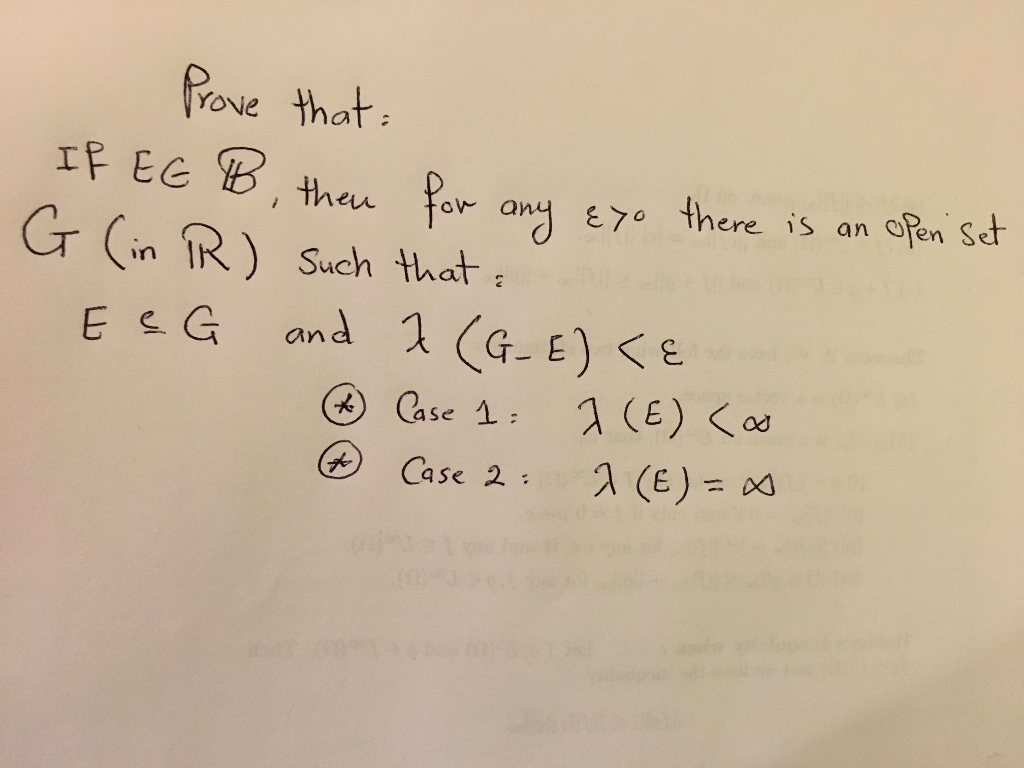 Prove that:
If E ∈ 𝔹, then for any ε>0 there is an open set
G (in ℝ) such that:
E ⊆ G and λ (G-E) < ε
⊛ Case 1: λ (E) < ∞
⊛ Case 2: λ (E) = ∞